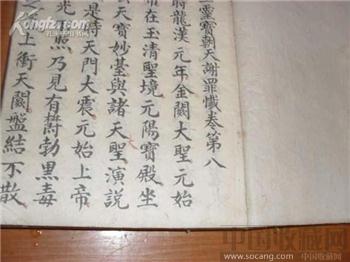 靈寶朝天謝罪懺卷第八
時龍漢元年金闕大聖元始
在玉清聖境元陽寶殿坐
天寶妙臺與諸天聖演説
是時天門大震元始上帝
光照乃見有勃黑毒
上衝天闕盤結不散
中国收藏网
www.socang.com 中国收藏网